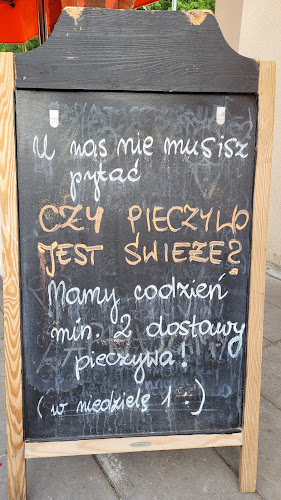 U nas nie musisz
pytać
CZY PIECZYWO
JEST ŚWIEŻE?
Mamy codzień
min. 2 dostawy
pieczywa!
(w niedzielę 1 :)